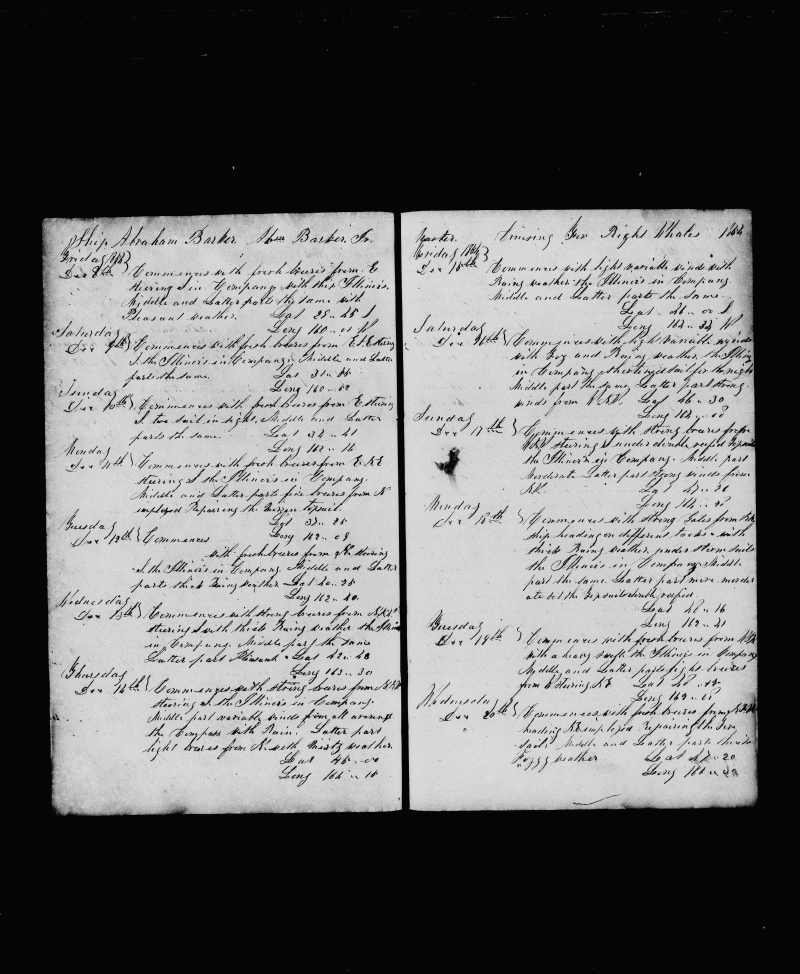 Ship Abraham Barker Abm Barker Jr.
Friday
Dec 8th } Commences with fresh breezes from E
Steering S in Company with ship Illinois.
Middle and Latter parts the same with
Pleasant weather. Lat 28 .. 25 S
Long 160 .. 01 W
Saturday
Dec 9th } Commences with fresh breezes from Steering
S. the Illinois in Company. Middle and Latter
parts the same. Lat 31 ..
Long 160 ..
Sunday
Dec 10th } Commences with fresh breezes from E. steering
S. two sail in sight, Middle and Latter
parts the same. Lat 34 .. 41
Long 161 .. 16
Monday
Dec 11th } Commences with fresh breezes from
steering S the Illinois in Company.
Middle and Latter parts fine breezes from N
employed Repairing the Mizen topsail.
Lat 37 .. 25
Tuesday Long 162 .. 08
Dec 12th } Commences
with fresh breezes from steering
S. the Illinois in Company Middle and Latter
parts thick Rainy weather Lat 40 .. 35
Long 162 .. 40
Wednesday
Dec 13th } Commences with strong breezes from
steering S with thick Rainy weather the Illinois
in Company. Middle part the same
Latter part Pleasant. Lat 42 ..
Long 163 .. 30
Thursday
Dec 14th } Commences with strong breezes from
steering S the Illinois in Company.
Middle part variable winds from all around
the Compass with Rain. Latter part
light breezes from N. with weather.
Lat 45 .. 00
Long 164 .. 16
Master. Cruising For Right Whales
Friday
Dec 15th } Commences with light variable winds with
Rainy weather the Illinois in Company.
Middle and Latter parts the same.
Lat 46 .. 01 S
Long 164 .. 34 W
Saturday
Dec 16th } Commences with light Variable winds
with Fog and Rainy weather. the Illinois
in Company shortened sail for the night
Middle part the same, Latter part strong
winds from Lat 46 .. 30
Long 164 .. 00
Sunday
Dec 17th } Commences with strong breezes from
steering S under double reefed topsails
the Illinois in Company. Middle part
Moderate. Latter part strong winds from
Lat 47 ..
Long 164 ..
Monday
Dec 18th } Commences with strong Gales from
ship heading on different tacks with
thick Rainy weather, under storm sails
the Illinois in Company Middle
part the same. Latter part more moder
ate set the topsails double reefed.
Lat 48 .. 16
Long 162 .. 21
Tuesday
Dec 19th } Commences with fresh breezes from
with a heavy swell, the Illinois in Company
Middle and Latter parts light breezes
from steering Lat
Long
Wednesday
Dec 20th } Commences with fresh breezes from
heading employed Repairing the
Sail. Middle and Latter parts thick
Foggy weather Lat 47 .. 20
Long